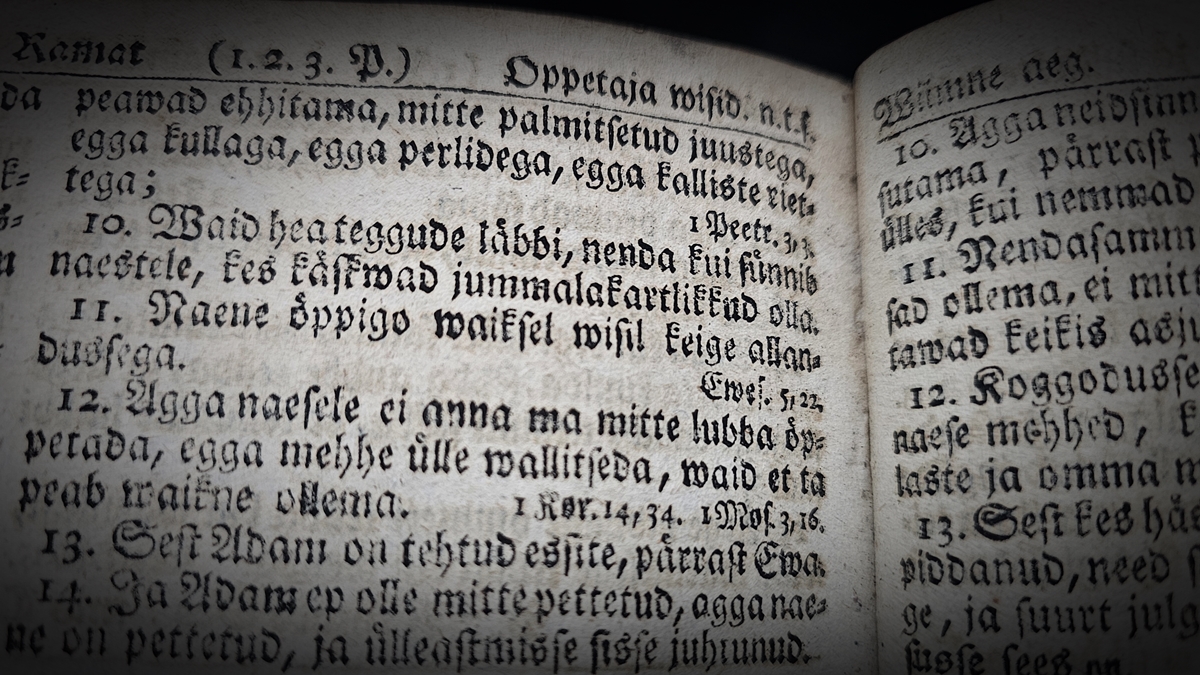 Ramat (1. 2. 3. P.) Oppetaja wisid. n. t. f.
da peawad ehhitama, mitte palmitsetud juustega,
egga kullaga, egga perlidega, egga kalliste riet-
tega; 1 Peetr. 3, 3.
10. Waid hea teggude läbbi, nenda kui sünnib
naestele, kes käskwad jummalakartlikkud olla.
11. Naene öppigo waiksel wisil keige allan-
dussega. Ewes. 5, 22.
12. Agga naesele ei anna ma mitte lubba öp-
petada, egga mehhe ülle wallitseda, waid et ta
peab waikne ollema. 1 Kor. 14, 34. 1 Mos. 3, 16.
13. Sest Adam on tehtud essite, pärrast Ewa.
14. Ja Adam ep olle mitte pettetud, agga nae-
ne on pettetud, ja ülleastmisse sisse juhtunud.
Wiimne aeg.
10. Agga neid
sutama, pärrast
ülles, kui nemmad
11. Nendasamm
sad ollema, ei mit
tawad keikis asj
12. Koggodusse
naese mehhed, k
laste ja omma m
13. Sest kes hä
piddanud, need
ge, ja suurt julg
susse sees on